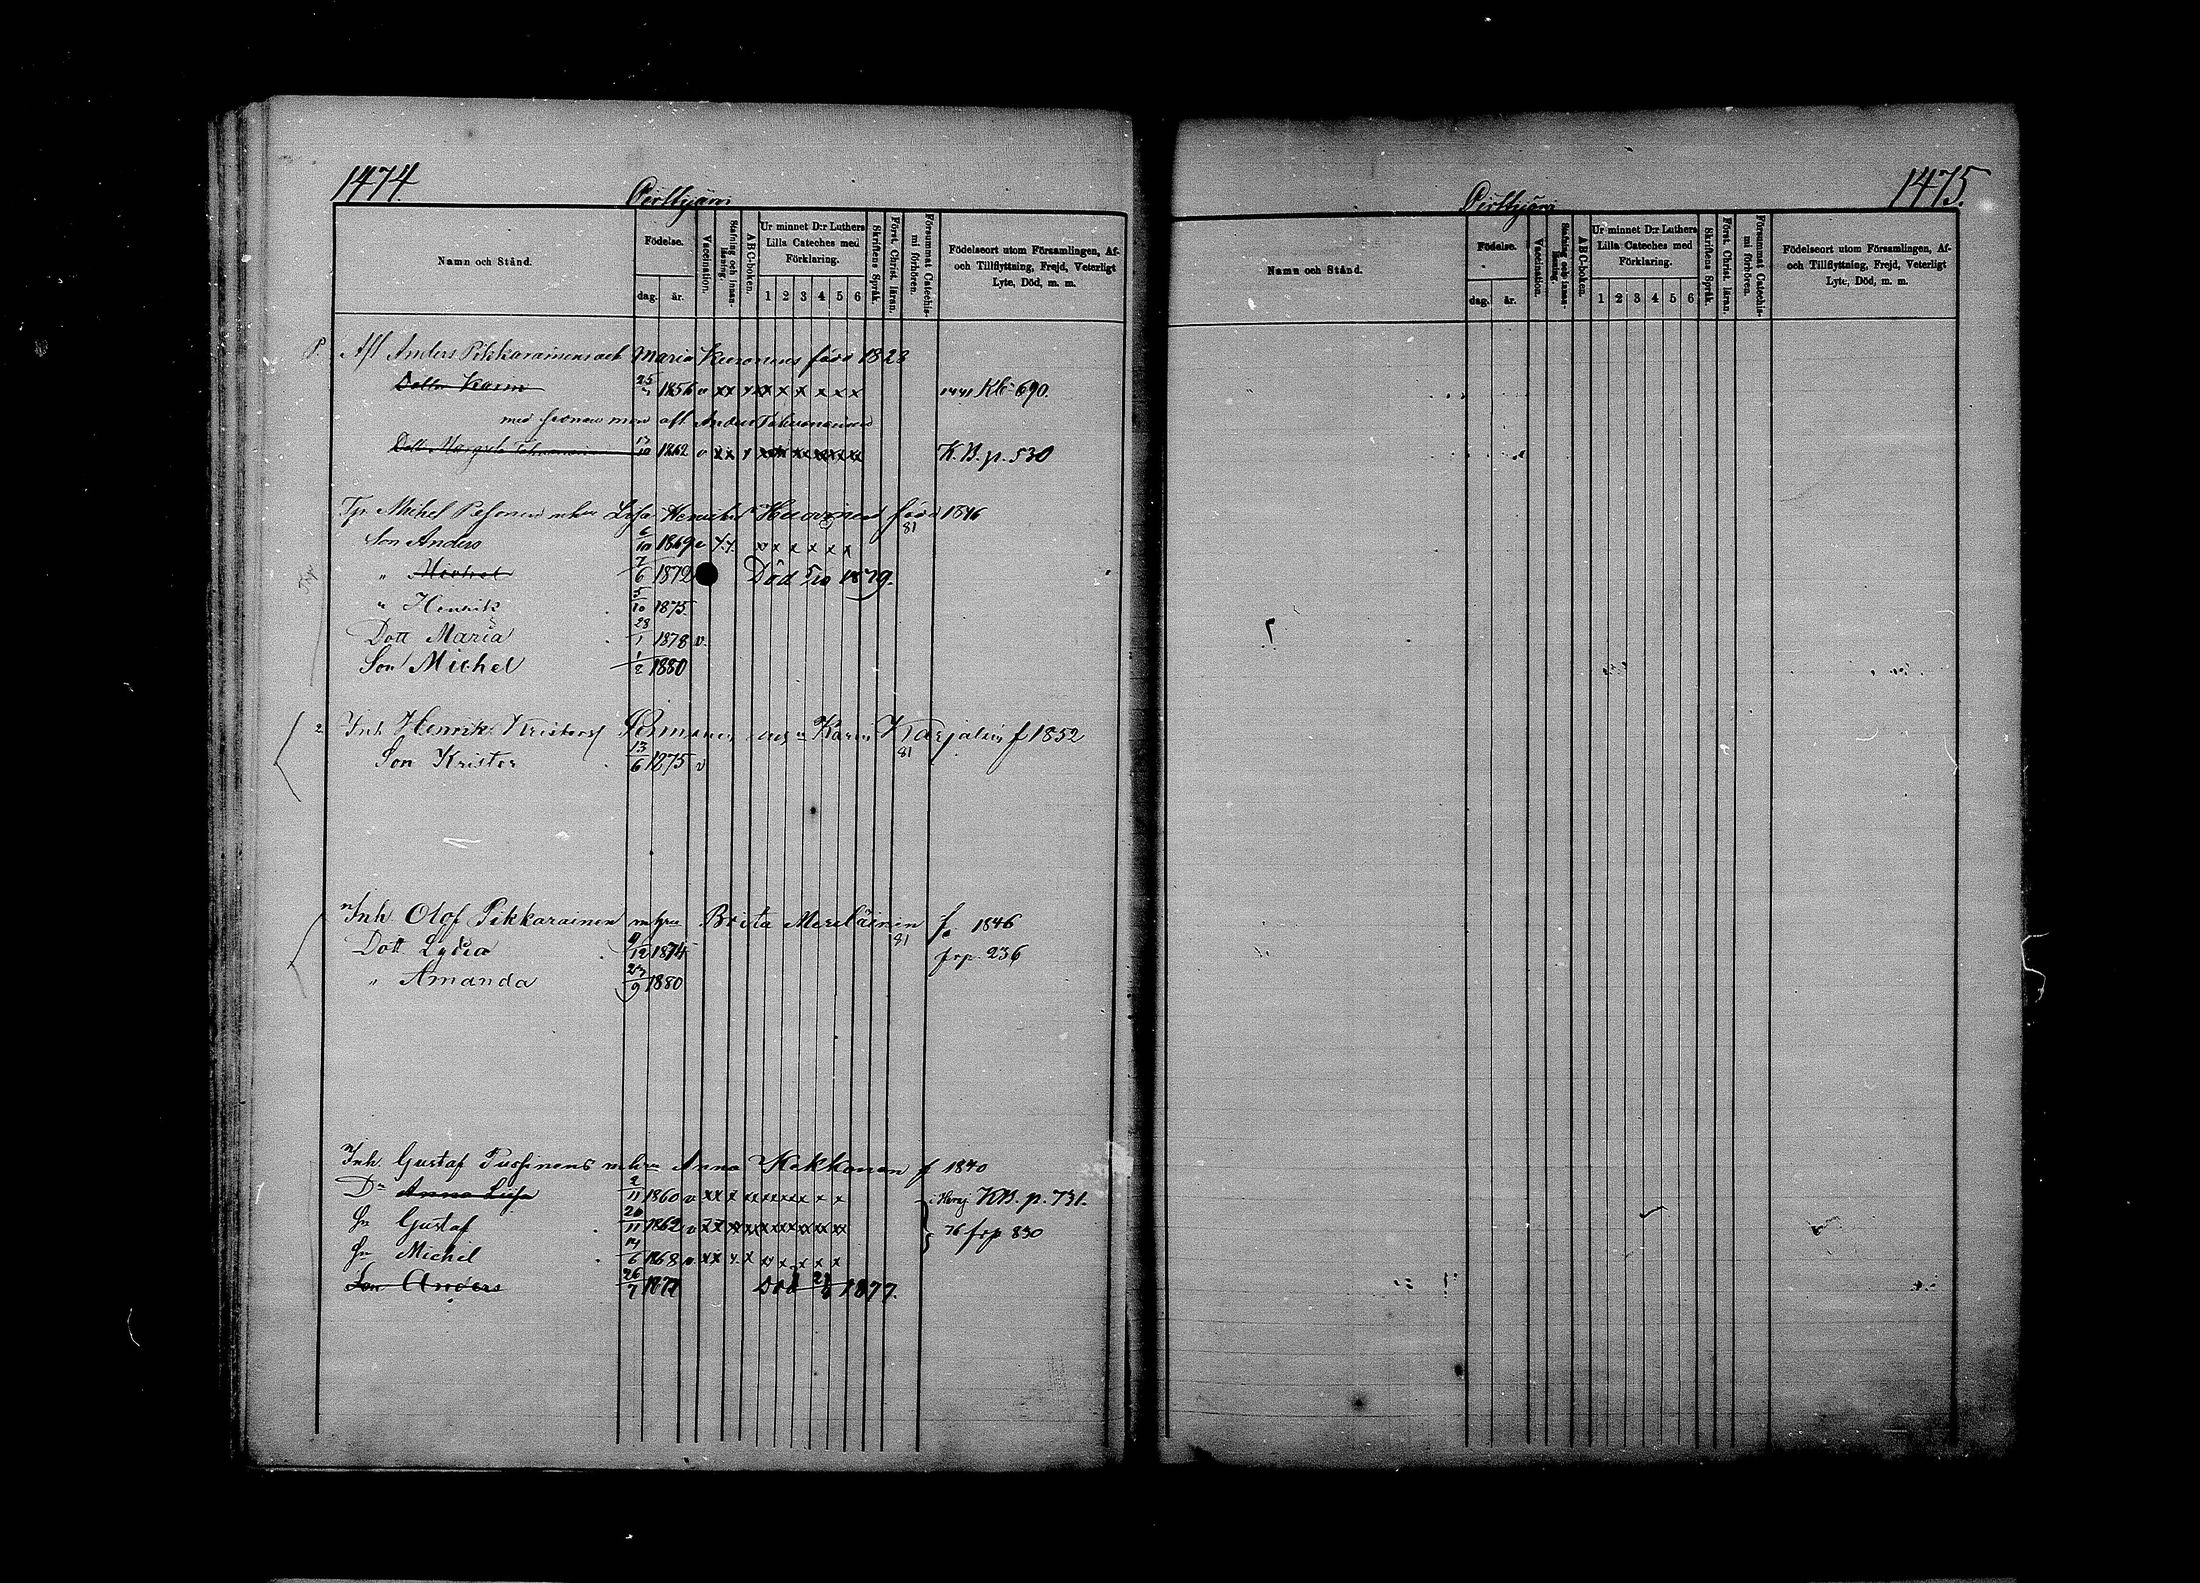 1474.
Namn och Stånd.
Födelse.
dag. år.
Vaccination.
Stafning och innan-läsning.
ABC-boken.
Ur minnet D:r Luthers Lilla Cateches med Förklaring.
1 2 3 4 5 6
Skriftens Språk.
Först. Christ. läran.
Försummat Catechis-mi förhören.
Födelseort utom Församlingen, Af- och Tillflyttning, Frejd, Veterligt Lyte, Död, m. m.
Afl Anders Pikkarainens och Maria Kuronens 1828
Karin 25 1856 v xx x x x x x x x Kb 690.
med män afl Anders
Margreta 17/10 1862 v x x x K.B. p. 530
Michel Pesonen Lisa Huovinen 1846
81
Son Anders 6/10 1869 v x x x x x x x x
" Michel 7/6 1872 Död 5/10 1879.
" Henrik 5/10 1875.
Dott Maria 28/1 1878 v.
Son Michel 1/2 1880
2 Inh Henrik Kristersf Karin Karjalain f 1852
81
Son Krister 13/6 1875 v
Inh. Olof Pikkarainen m hru Brita Meriläinin f. 1846
81
Dott Lydia /12 1874 frp. 236
" Amanda 27/9 1880
Inh. Gustaf m hru Anna Kekkonen f 1840
Dr Anna Lisa 2/11 1860 v xx x x x x x x x KB. p. 731.
Sn Gustaf 20/11 1862 v x x x x x x x x x 76 frp 830
Sn Michel 14/6 1868 v x x x x x x x x x
Son Anders 26/7 1877 Död 1877.
1475.
Namn och Stånd.
Födelse.
dag. år.
Vaccination.
Stafning och innan-läsning.
ABC-boken.
Ur minnet D:r Luthers Lilla Cateches med Förklaring.
1 2 3 4 5 6
Skriftens Språk.
Först. Christ. läran.
Försummat Catechis-mi förhören.
Födelseort utom Församlingen, Af- och Tillflyttning, Frejd, Veterligt Lyte, Död, m. m.